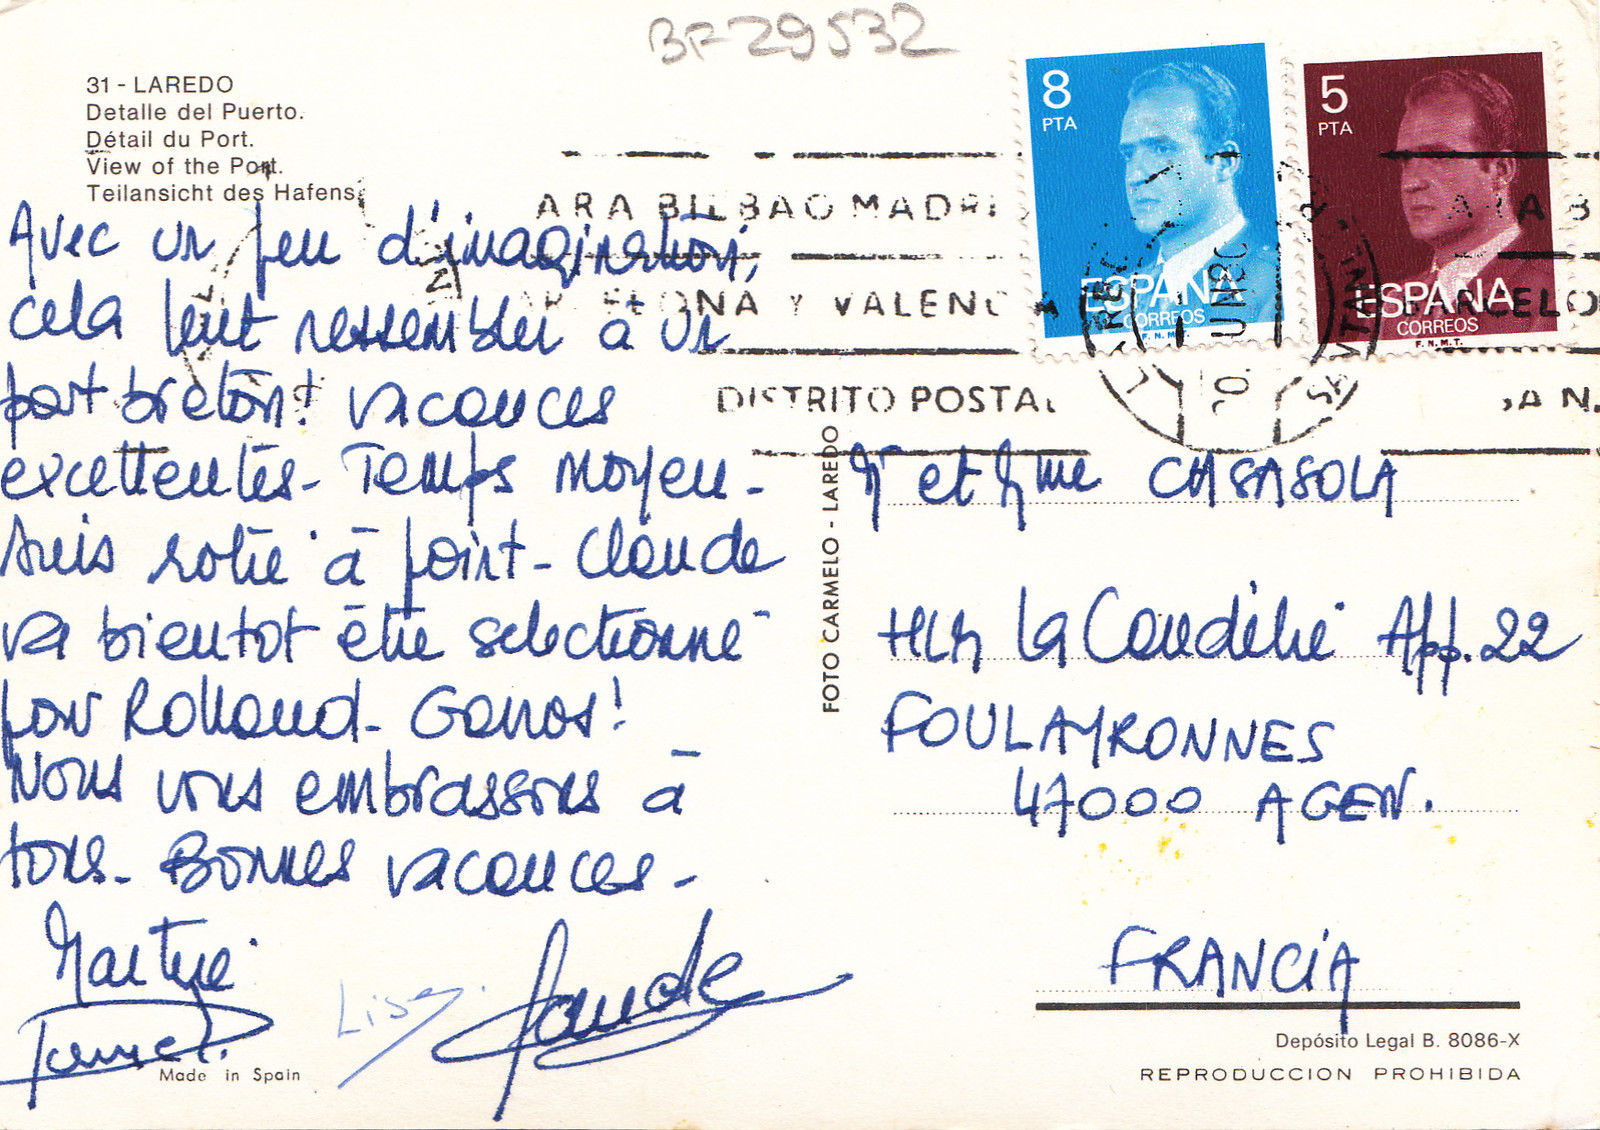 BF 29532
31 - LAREDO
Detalle del Puerto.
Détail du Port.
View of the Port.
Teilansicht des Hafens.
8
PTA
ESPAÑA
CORREOS
F. N. M. T.
5
PTA
ESPAÑA
CORREOS
F. N. M. T.
ARA BILBAO MADRI
ELONA Y VALENC A
DISTRITO POSTAL
Avec un peu d'imagination,
cela peut ressembler à un
port breton! vacances
excellentes - Temps moyen -
suis rôtie à point - Claude
va bientôt être sélectionné
pour Rolland - Garros!
Nous vous embrassons à
tous - Bonnes vacances -
Martine
Lisa
Claude
Made in Spain
FOTO CARMELO - LAREDO
Mr et Mme CASASOLA
HLM La Candélie App. 22
FOULAYRONNES
47000 AGEN.
FRANCIA
Depósito Legal B. 8086-X
REPRODUCCION PROHIBIDA